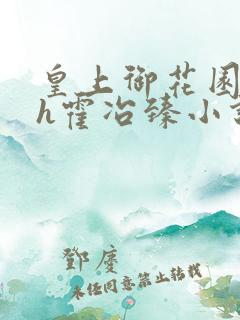 皇上御花园
h霍冶臻小
鄧廣
未经同意禁止转载